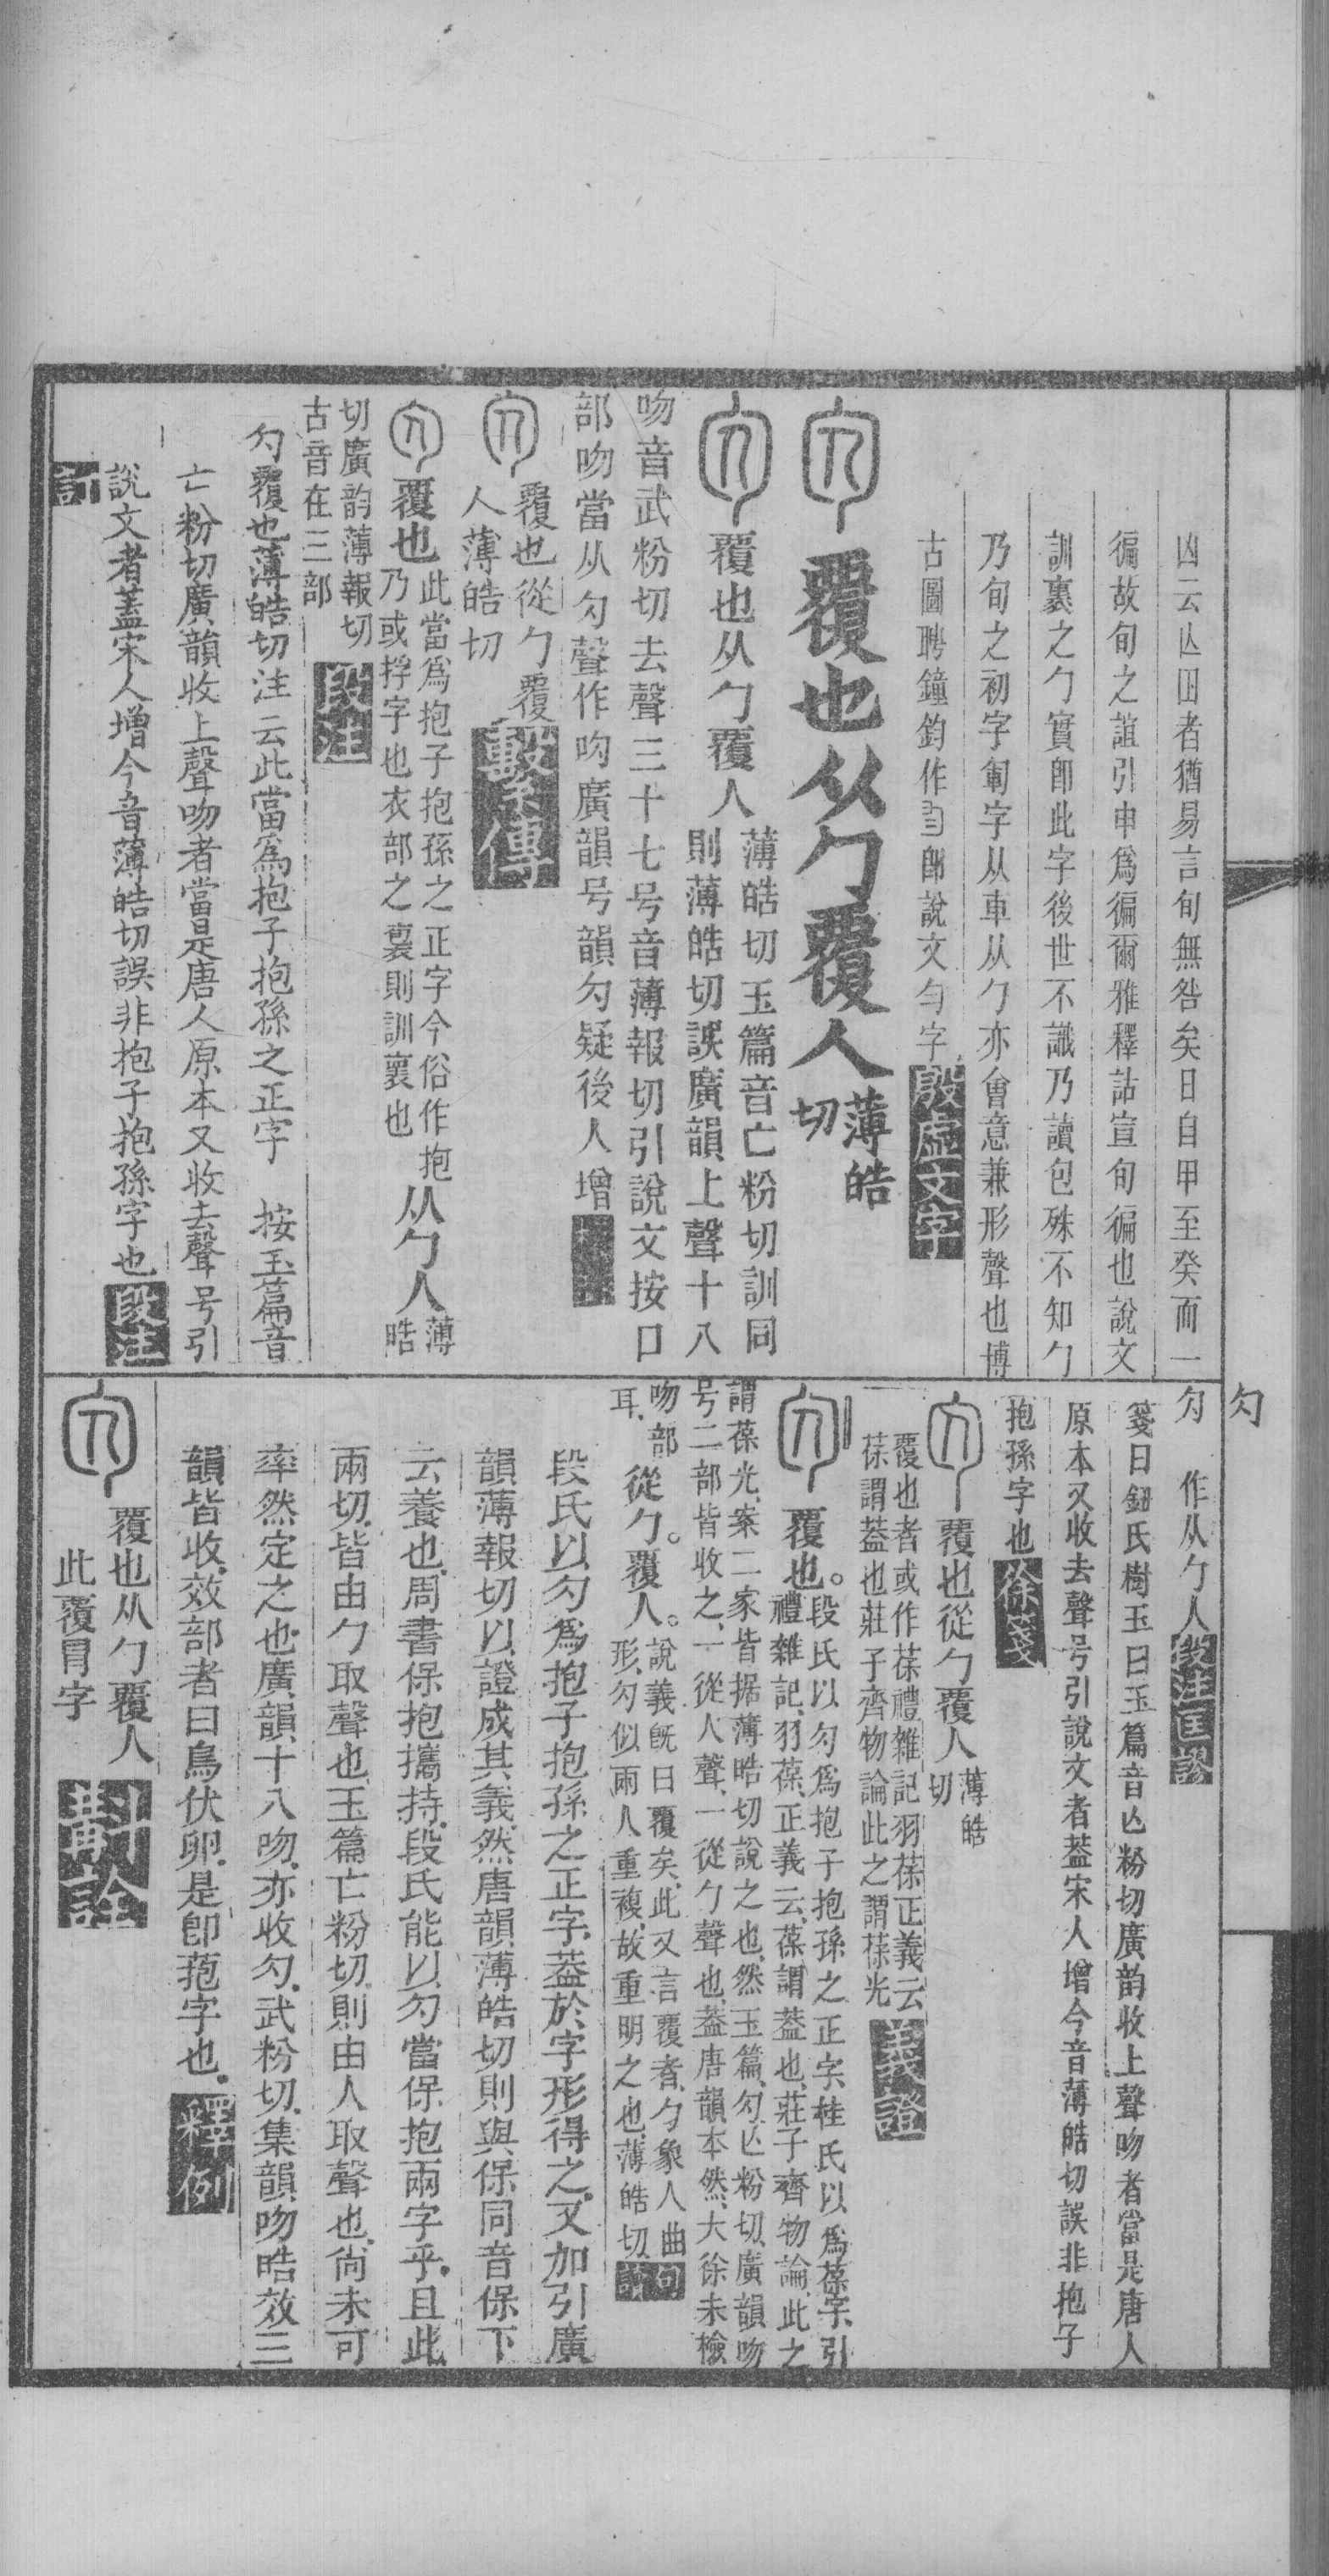 凶云亾𡆥者猶易言旬無咎矣日自甲至癸而一
徧故旬之誼引申爲徧爾雅釋詁宣旬徧也說文
訓裹之勹實卽此字後世不識乃讀包殊不知勹
乃旬之初字軍字从車从勹亦會意兼形聲也博
古圖聘鐘鈞作卽說文勻字殷虛文字
覆也从勹覆人薄皓
切
覆也从勹覆人薄皓切玉篇音亡粉切訓同
則薄皓切誤廣韻上聲十八
吻音武粉切去聲三十七号音薄報切引說文按口
部吻當从勽聲作呁廣韻号韻勽疑後人增
覆也從勹覆
人薄皓切繫傳
覆也此當爲抱子抱孫之正字今俗作抱
乃或捊字也衣部之裹則訓褱也从勹人薄
皓
切廣韵薄報切
古音在三部段注
勽覆也薄皓切注云此當爲抱子抱孫之正字 按玉篇音
亡粉切廣韻收上聲吻者當是唐人原本又收去聲号引
說文者蓋宋人增今音薄皓切誤非抱子抱孫字也段注
訂
勽
勽 作从勹人段注匡謬
箋曰鈕氏樹玉曰玉篇音亾粉切廣韵收上聲吻者當是唐人
原本又收去聲号引說文者葢宋人增今音薄皓切誤非抱子
抱孫字也徐箋
覆也從勹覆人薄皓
切
覆也者或作葆禮雜記羽葆正義云
葆謂葢也莊子齊物論此之謂葆光義證
覆也。段氏以勽爲抱子抱孫之正字、桂氏以爲葆字、引
禮雜記、羽葆、正義云、葆謂葢也、莊子齊物論、此之
謂葆光、案二家皆据薄皓切說之也、然玉篇、勽、亾粉切、廣韻吻
号二部皆收之、一從人聲、一從勹聲也、葢唐韻本然、大徐未檢
吻部
耳、從勹。覆人。說義旣曰覆矣、此又言覆者、勹象人曲
形、勽似兩人重複、故重明之也、薄皓切、句
讀
段氏以勽爲抱子抱孫之正字、葢於字形得之、又加引廣
韻薄報切以證成其義、然唐韻薄皓切則與保同音保下
云養也、周書保抱攜持、段氏能以勽當保抱兩字乎、且此
兩切、皆由勹取聲也、玉篇亡粉切、則由人取聲也、尙未可
率然定之也、廣韻十八吻、亦收勽、武粉切、集韻吻皓效三
韻皆收、效部者曰鳥伏卵、是卽菢字也、釋例
覆也从勹覆人
此覆冃字斠詮